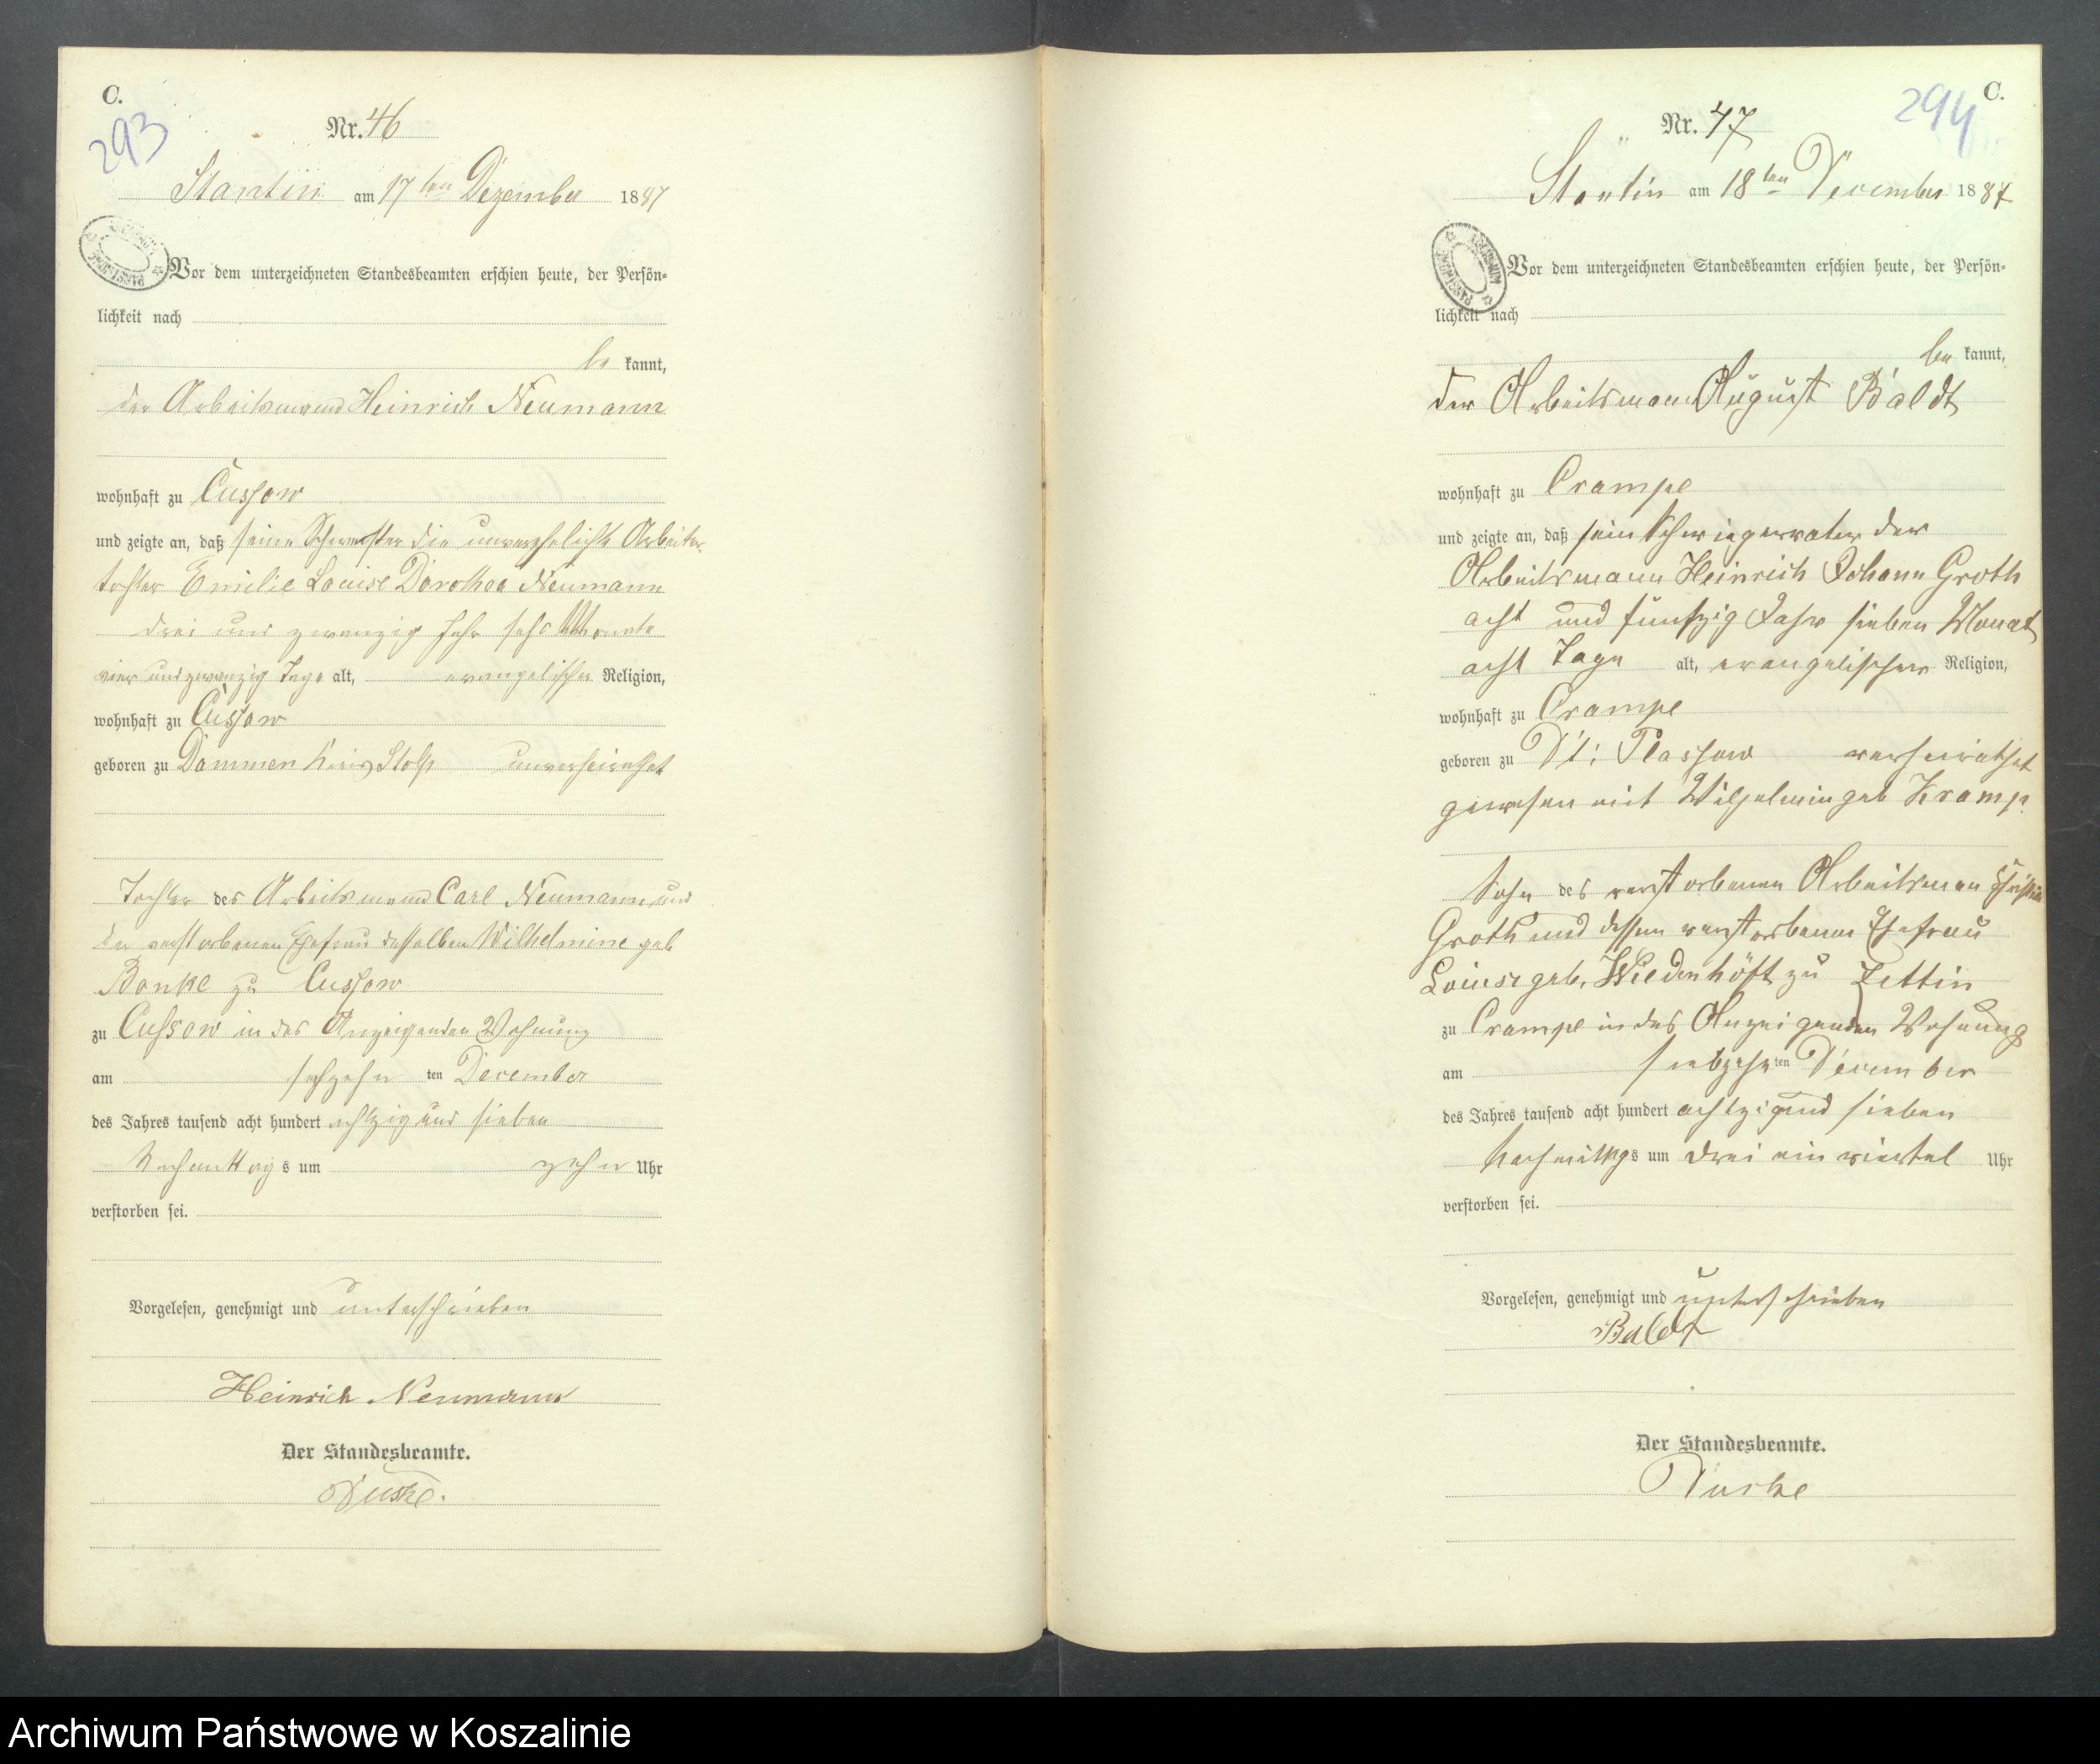 C.
293
Nr. 46
Stantin am 17ten Dezember 1887
Vor dem unterzeichneten Standesbeamten erschien heute, der Persön-
lichkeit nach
be kannt,
der Arbeitsmann Heinrich Neumann
wohnhaft zu Cussow
und zeigte an, daß seine Schwester die unverehelichte Arbeiter
tochter Emilie Louise Dorothea Neumann
drei und zwanzig Jahr sechs Monate
vier und zwanzig Tage alt, evangelischer Religion,
wohnhaft zu Cussow
geboren zu Dammen Kreis Stolp unverheirathet
Tochter des Arbeitsmann Carl Neumann und
der verstorbenen Ehefrau desselben Wilhelmine geb
Banke zu Cussow
zu Cussow in des Anzeigenden Wohnung
am sechzehn ten December
des Jahres tausend acht hundert achtzig und sieben
Nachmittags um zehn Uhr
verstorben sei.
Vorgelesen, genehmigt und unterschrieben
Heinrich Neumann
Der Standesbeamte.
C.
294
Nr. 47
Stantin am 18ten December 1887
Vor dem unterzeichneten Standesbeamten erschien heute, der Persön-
lichkeit nach
be kannt,
der Arbeitsmann August Baldt
wohnhaft zu Crampe
und zeigte an, daß sein Schwiegervater der
Arbeitsmann Heinrich Johann Groth
acht und funfzig Jahr sieben Monat
acht Tage alt, evangelischer Religion,
wohnhaft zu Crampe
geboren zu Dt: Plassow verheirathet
gewesen mit Wilhelmin geb Kramp
Sohn des verstorbenen Arbeitsman Christian
Groth und dessen verstorbener Ehefrau
Louise geb. Wiedenhöft zu Zettin
zu Crampe in des Anzeigenden Wohnung
am siebzehn ten December
des Jahres tausend acht hundert achtzig und sieben
Nachmittgs um drei ein viertel Uhr
verstorben sei.
Vorgelesen, genehmigt und unterschrieben
Baldt
Der Standesbeamte.
Archiwum Państwowe w Koszalinie